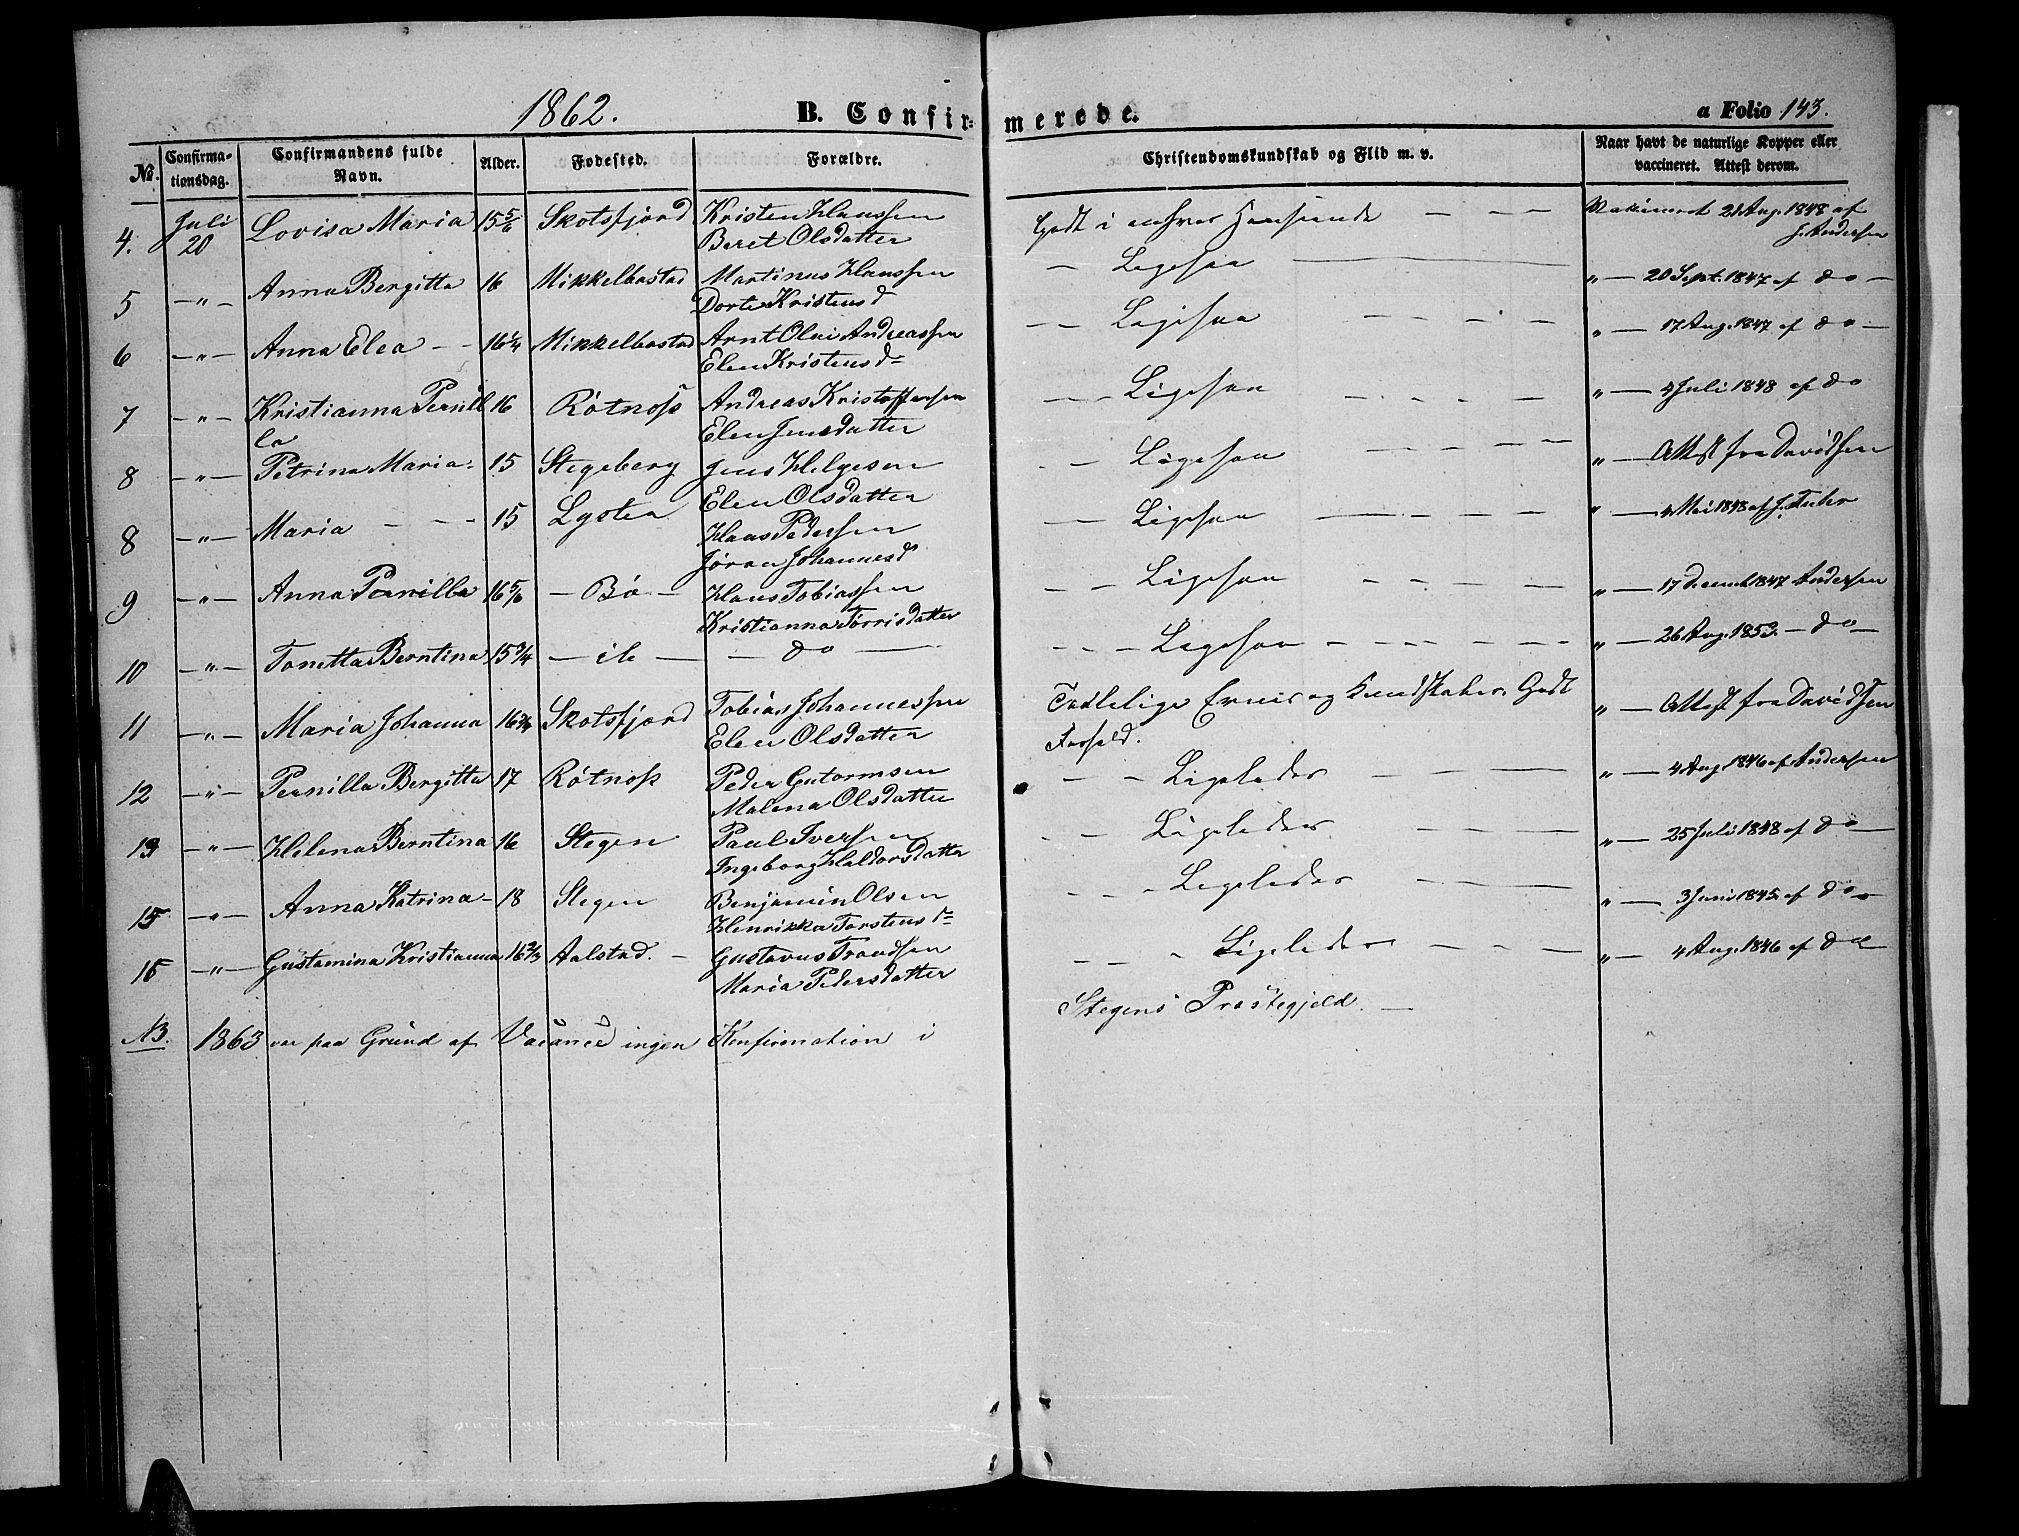 1862. B. Confir-merede. a Folio 143.
No. Confirma-tionsdag. Confirmandens fulde Navn. Alder. Fødested. Forældre. Christendomskundskab og Flid m. v. Naar havt de naturlige Kopper eller vaccineret. Attest derom.
4. Juli 20 Lovisa Maria 15 5/6 Skotsfjord Kristen Hanssen Godt i enhver Henseende — — — Vakcineret 21 Aug. 1848 af
Beret Olsdatter J. Andersen
5 —"— Anna Bergitta 16 Mikkelbostad Martinus Hanssen — Ligesaa — "— 20 Sept. 1847 af do —
Dorte Kristensd
6 —"— Anna Elea — 16 1/4 Mikkelbostad Arnt Olai Andreassen — — Ligesaa — — — — "— 17 Aug. 1847 af do —
Elen Kristensd
7 —"— Kristianna Pernil 16 Røtnoss Andreas Kristoffersen — — Ligesaa — — — — "— 4 Juli 1848 af do
la Elen Jensdatter
8 —"— Petrina Maria 15 Stegeberg Jens Helgesen — Ligesaa — — — — "— Attest fra Davidsen
Elen Olsdatter
8 —"— Maria — — — 15 Lysten Hans Pedersen — Ligesaa — — — — "— 4 Mai 1848 af J.
Jøran Johannesd
9 —"— Anna Pernilla 16 5/6 — Bø — Hans Tobiassen — — Ligesaa — — — — "— 17 Decemb 1847 Andersen
Kristianna Torrisdatter
10 —"— Tonetta Berntina 15 3/4 — ib — — do — — — Ligesaa — — — — "— 26 Aug. 1853 — do —
11 —"— Maria Johanna 16 3/4 Skotsfjord Tobias Johannessen Taalelige Evner og Kundskaber. Godt "— Attest fra Davidsen
Elen Olsdatter Forhold.
12 —"— Pernilla Bergitta 17 Røtnoss Peder Gutormsen — — Ligeledes — — — "— 4 Aug 1846 af Andersen
Malena Olsdatter
13 —"— Helena Berntina 16 Stegen Paul Iversen — — Ligeledes — — — "— 25 Juli 1848 af do —
Ingeborg Haldorsdatter
15 —"— Anna Katrina — 18 Stegen Benjamin Olsen — — Ligeledes — — — "— 3 Juni 1845 af do
Henrikka Torstensd
16 —"— Gustamina Kristianna 16 2/3 Aalstad. — Gustavus Trondsen — — — Ligeledes — — — "— 4 Aug. 1846 af do
Maria Pedersdatter
NB. 1863 var paa Grund af Vacance ingen Konfirmation i Stegens Præstegjeld. —